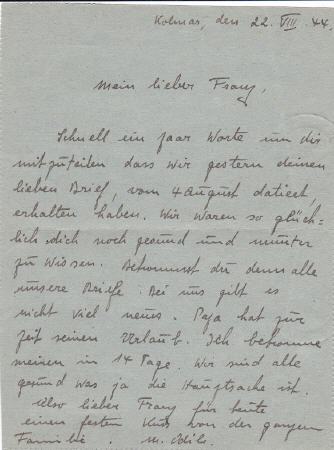 Kolmar, den 22. VIII. 44.
Mein lieber Franz,
Schnell ein paar Worte um dir
mitzuteilen dass wir gestern deinen
lieben Brief, vom 4 August datiert,
erhalten haben. Wir waren so glück=
lich dich noch gesund und munter
zu wissen. Bekommst du denn alle
unsere Briefe. Bei uns gibt es
nicht viel neues. Papa hat zur
zeit seinen Urlaub. Ich bekomme
meinen in 14 Tage. Wir sind alle
gesund was ja die Hauptsache ist.
Also lieber Franz für heute
einen festen Kuss von der ganzen
Familie. M. Odile.